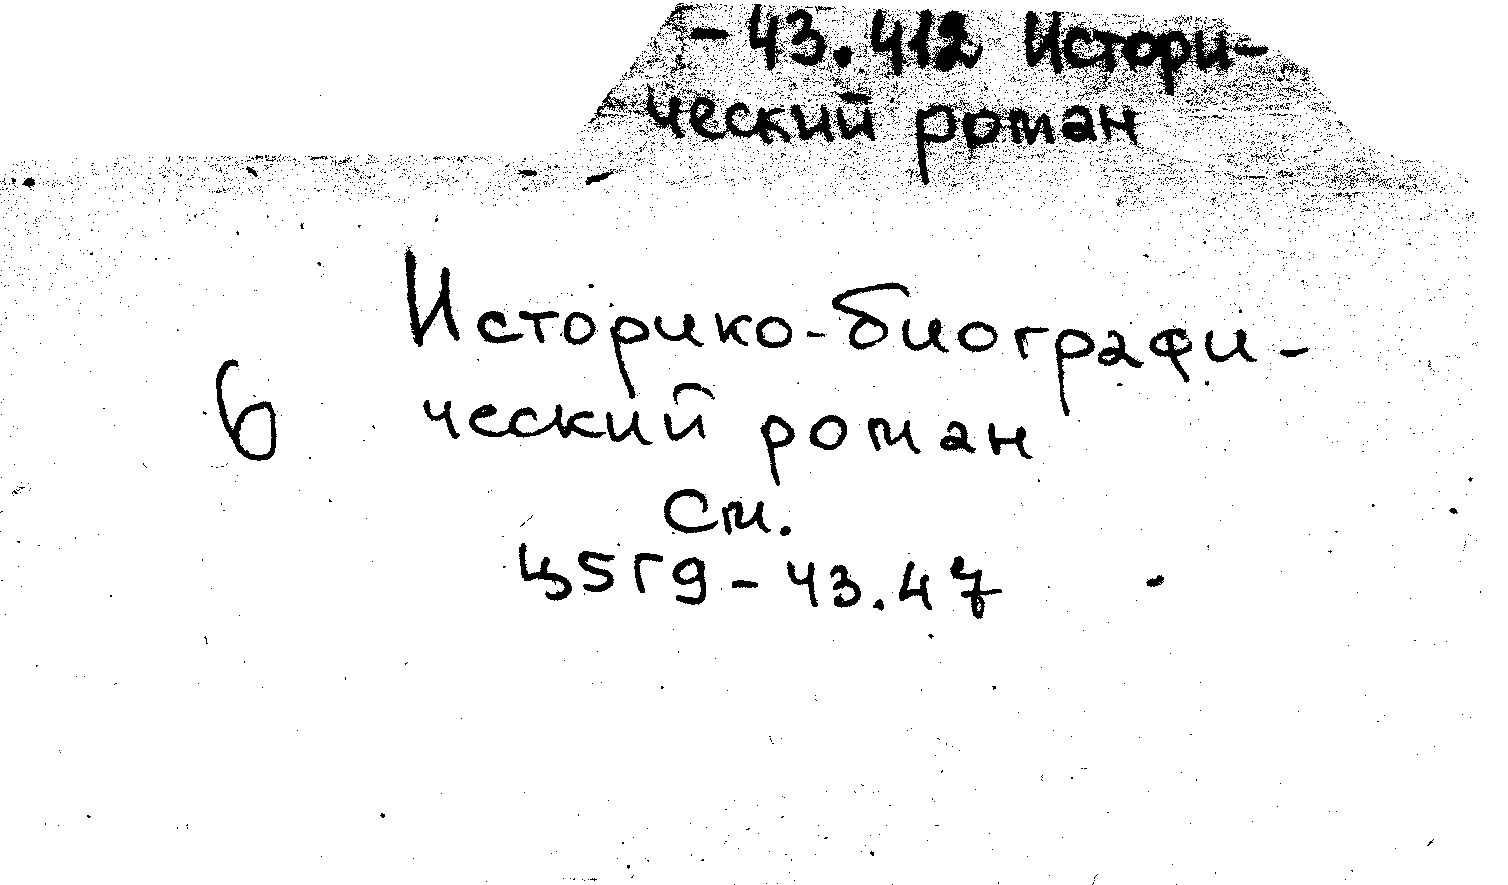 -43.412 Истори-
ческий роман
Историко-биографи-
6
ческий роман
См.
Ц5Г9-43.47